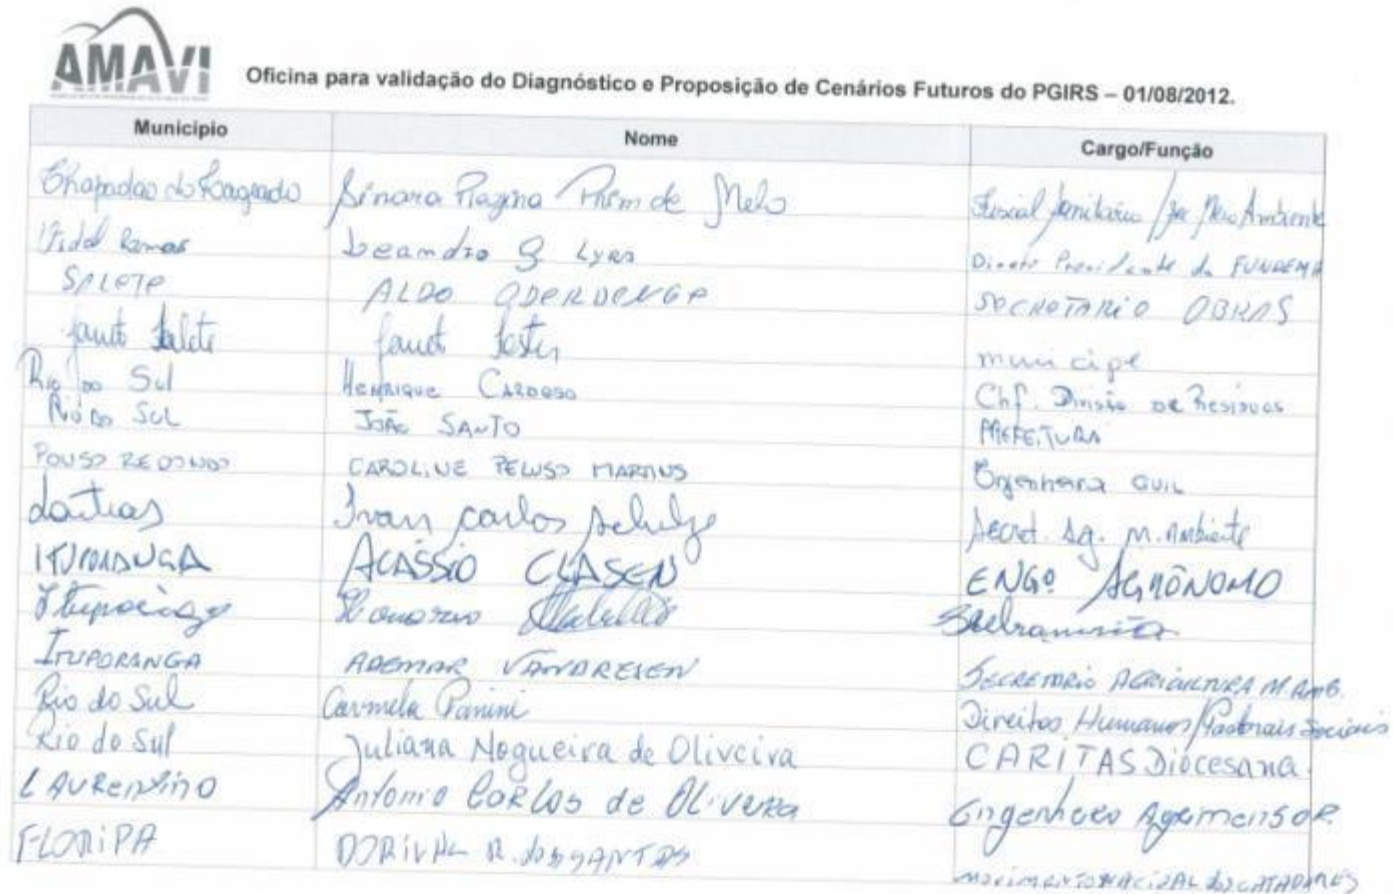 AMAVI
Oficina para validação do Diagnóstico e Proposição de Cenários Futuros do PGIRS – 01/08/2012.
Município Nome Cargo/Função
Chapadão do Lageado Sinara Regina de Melo Fiscal Sanitário / Meio Ambiente
Vidal Ramos Leandro G Lyra Direto Presidente da FUNDEMA
SALETE ALDO SECRETARIO OBRAS
Salete municipe
Rio do Sul Henrique Cardoso Chf. Divisão de Resíduos
Rio do Sul João Santo Prefeitura
POUSO REDONDO CAROLINE PELUSO MARTINS Engenheira CIVIL
Ivan Carlos Schulze Secret. Ag. M. Ambiente
ITUPORANGA ACÁSSIO CLASEN ENGº AGRÔNOMO
ITUPORANGA ADEMAR VANDRESEN SECRETARIO AGRICULTURA M. AMB.
Rio do Sul Carmela Panini Direitos Humanos/Pastorais Sociais
Rio do Sul Juliana Nogueira de Oliveira CARITAS Diocesana.
LAURENTINO Antonio Carlos de Olivera Engenheiro Agrimensor
FLORIPA DORIVAL R. dos SANTOS MOVIMENTO NACIONAL dos CATADORES